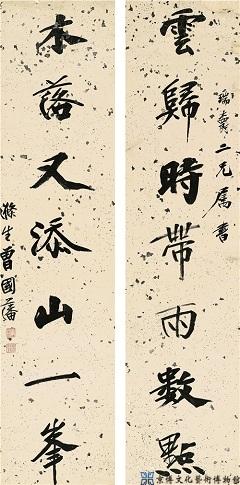 雲歸時帶雨數點
瑞囊二兄屬書
木落又添山一峯
滌生曾國藩
京博文化藝術博物館